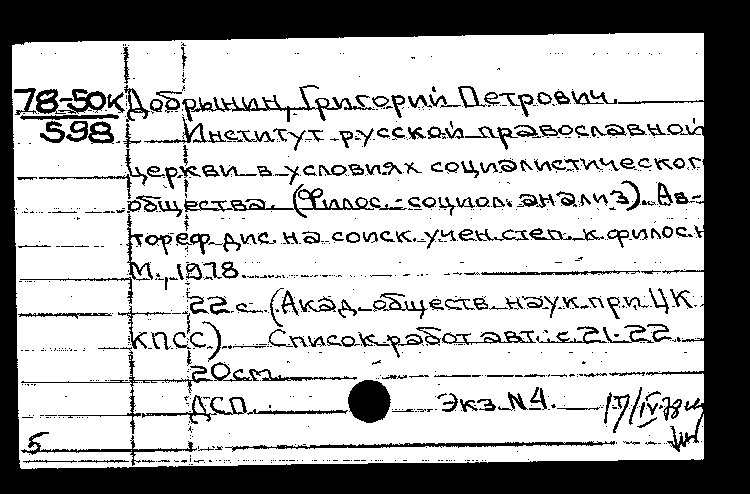 78-50к Добрынин, Григорий Петрович.
598 Институт русской православной
церкви в условиях социалистического
общества. (Филос.-социол. анализ). Ав-
тореф дис. на соиск. учен. степ. к. филос. н
М., 1978.
22 с (Акад. обществ. наук при ЦК
КПСС). Список работ авт.: с. 21-22.
20 см.
ДСП. Экз. N 4.
5